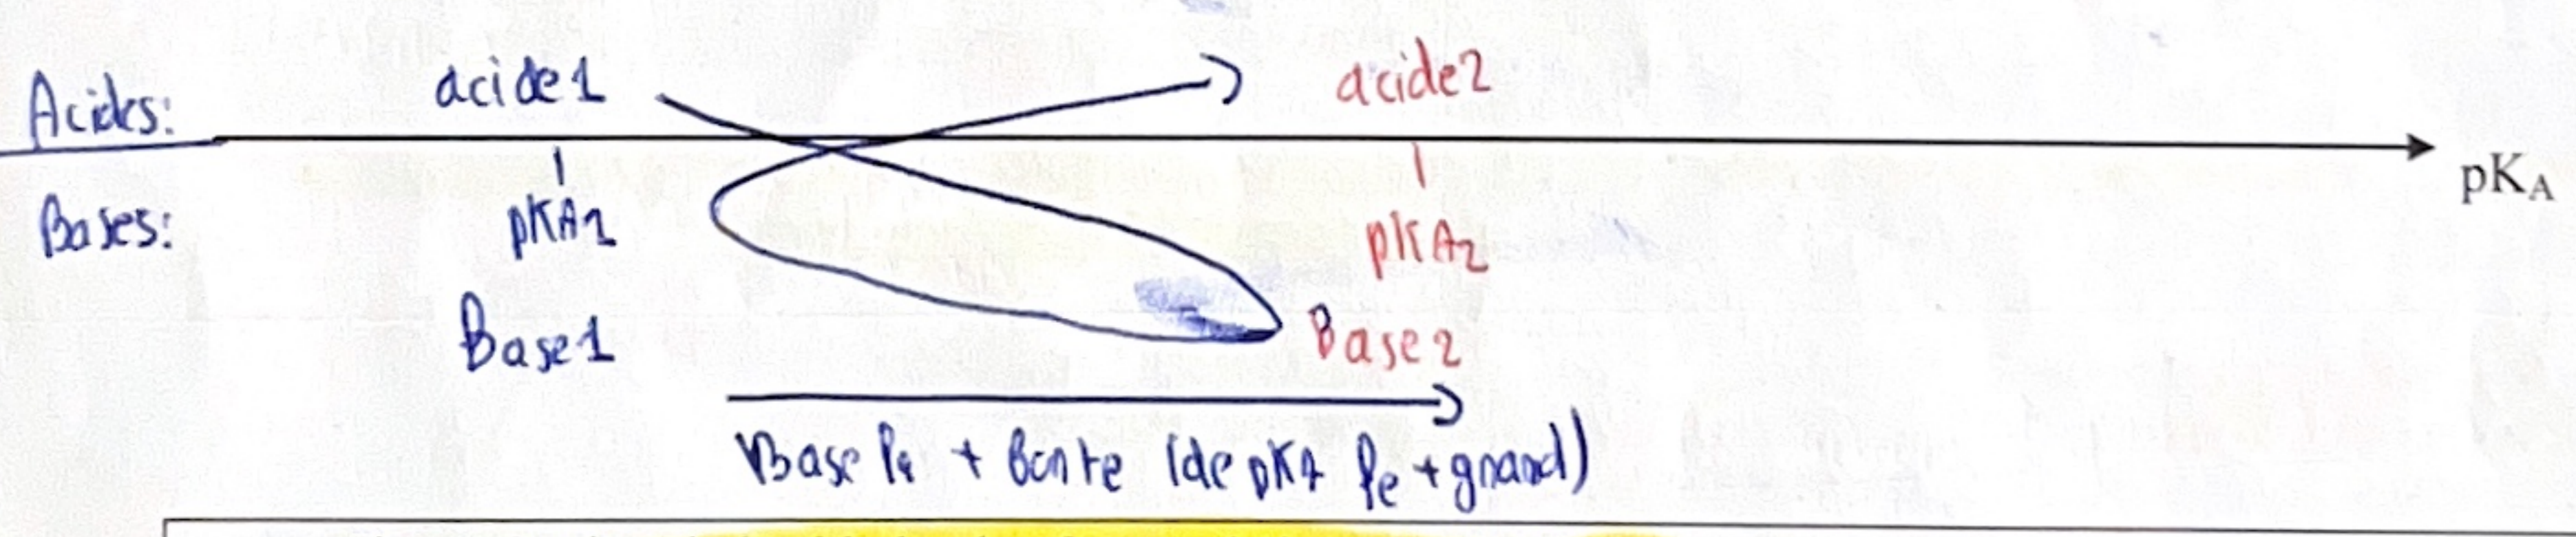 Acides: acide1 acide2
pKA
Bases: pKA1 pKA2
Base1 Base2
Base le + forte (de pKA le + grand)